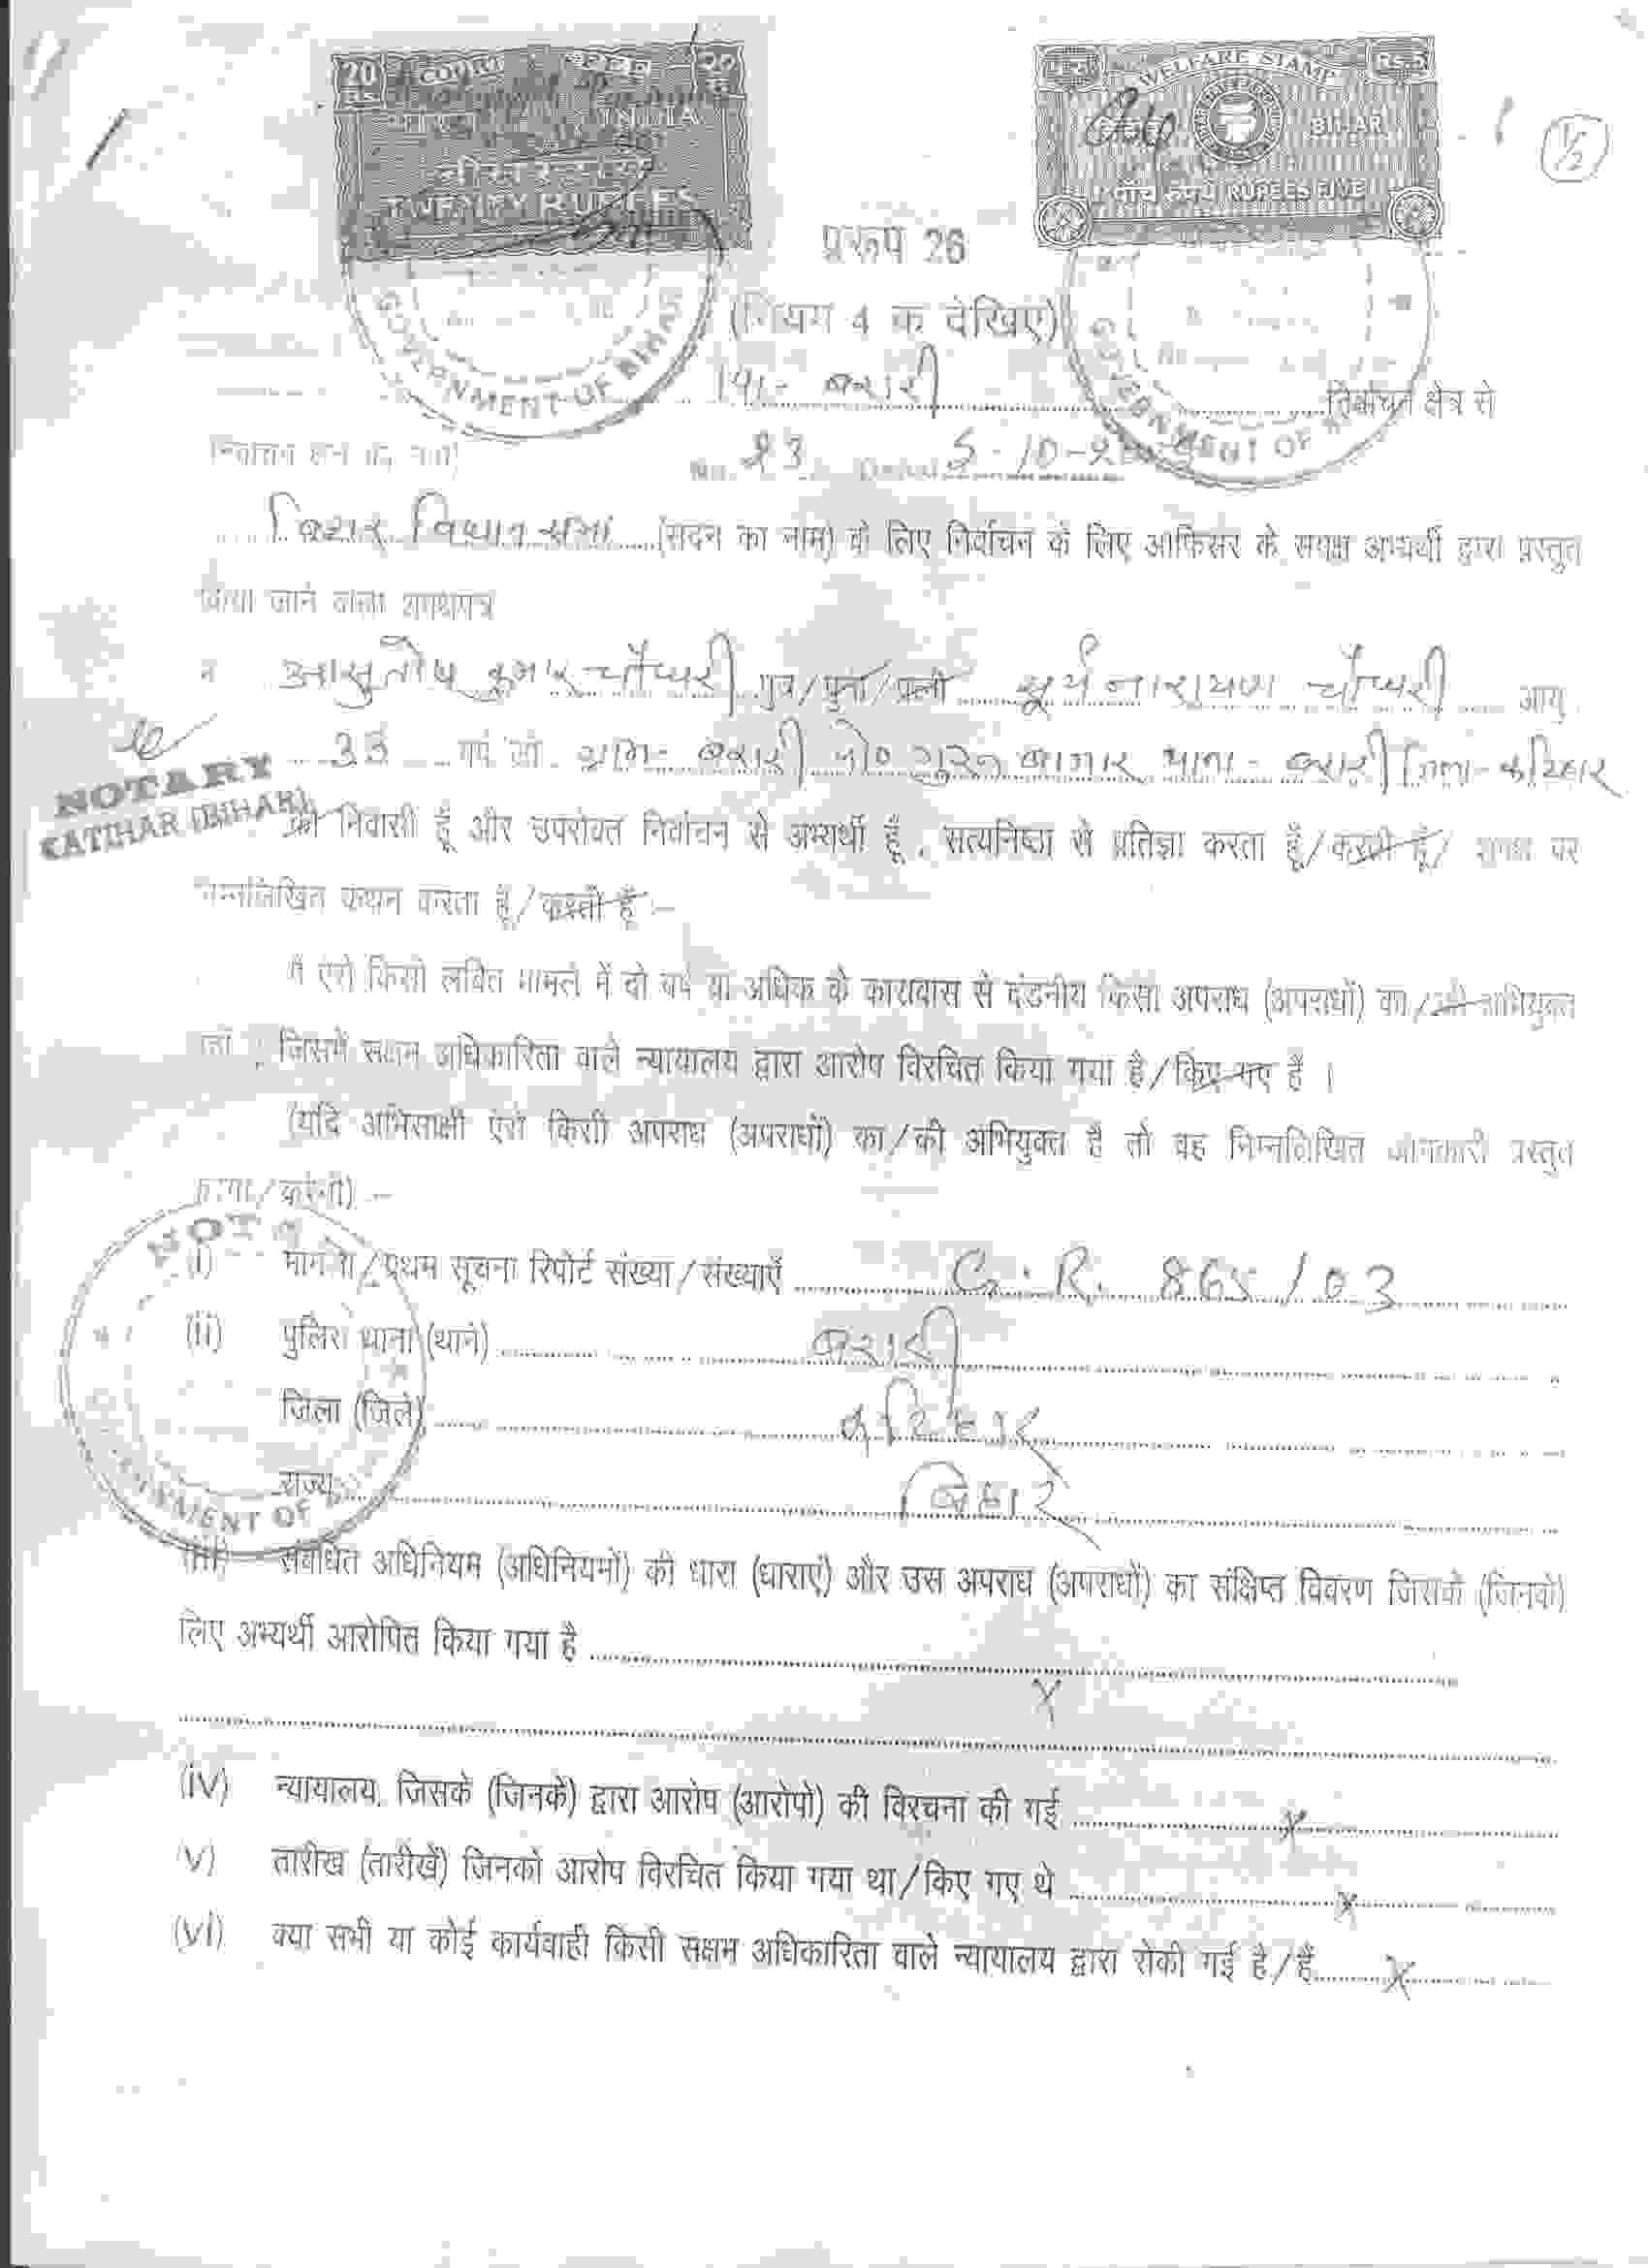 20 Rs. COURT
INDIA
TWENTY RUPEES
WELFARE STAMP Rs. 5
BIHAR
पाँच रूपये RUPEES FIVE
1/2
प्ररूप 26
(नियम 4 क देखिए)
GOVERNMENT OF BIHAR
GOVERNMENT OF
बरारी निर्वाचन क्षेत्र से
No. Dated 5-10-
विधान सभा (सदन का नाम) के लिए निर्वाचन के लिए आफिसर के समक्ष अभ्यर्थी द्वारा प्रस्तुत
किया जाने वाला शपथपत्र
आसुतोष कुमार चौधरी पुत्र/पुत्री/पत्नी सूर्य नारायण चौधरी आयु
वर्ष जो ग्राम- बरारी पो० गुरू बाजार थाना- बरारी जिला- कटिहार
NOTARY
CATIHAR (BIHAR)
का निवासी हूँ और उपरोक्त निर्वाचन से अभ्यर्थी हूँ, सत्यनिष्ठा से प्रतिज्ञा करता हूँ/करती हूँ/ शपथ पर
निम्नलिखित कथन करता हूँ/करती हूँ :-
मैं ऐसे किसी लंबित मामले में दो वर्ष या अधिक के कारावास से दंडनीय किसी अपराध (अपराधों) का/की अभियुक्त
जिसमें सक्षम अधिकारिता वाले न्यायालय द्वारा आरोप विरचित किया गया है/किए गए हैं ।
(यदि अभिसाक्षी ऐसे किसी अपराध (अपराधों) का/की अभियुक्त है तो वह निम्नलिखित जानकारी प्रस्तुत
करेगा/करेगी) :-
NOTA
(i) मामला/प्रथम सूचना रिपोर्ट संख्या/संख्याएँ G.R. 865/03
(ii) पुलिस थाना (थाने) बरारी
जिला (जिले) कटिहार
राज्य बिहार
(iii) संबंधित अधिनियम (अधिनियमों) की धारा (धाराएं) और उस अपराध (अपराधों) का संक्षिप्त विवरण जिसके (जिनके)
लिए अभ्यर्थी आरोपित किया गया है
X
(iv) न्यायालय, जिसके (जिनके) द्वारा आरोप (आरोपो) की विरचना की गई X
(v) तारीख (तारीखें) जिनको आरोप विरचित किया गया था/किए गए थे X
(vi) क्या सभी या कोई कार्यवाही किसी सक्षम अधिकारिता वाले न्यायालय द्वारा रोकी गई है/हैं X